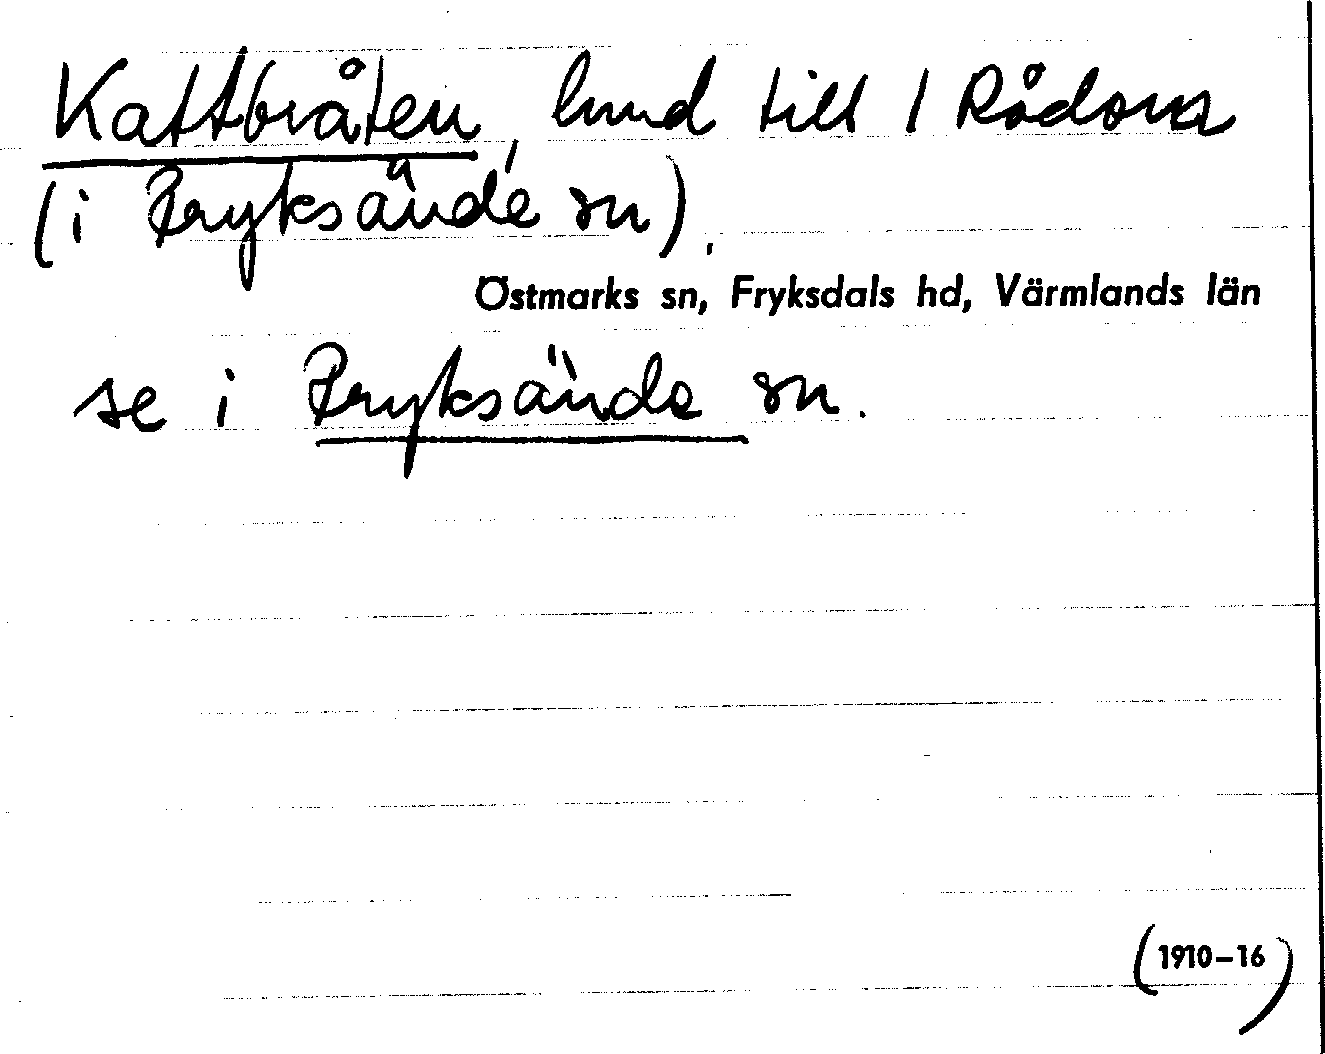 Kattbråten, lmd till 1 Rådom
(i Fryksände sn).
Östmarks sn, Fryksdals hd, Värmlands län
se i Fryksände sn.
(1910–16)